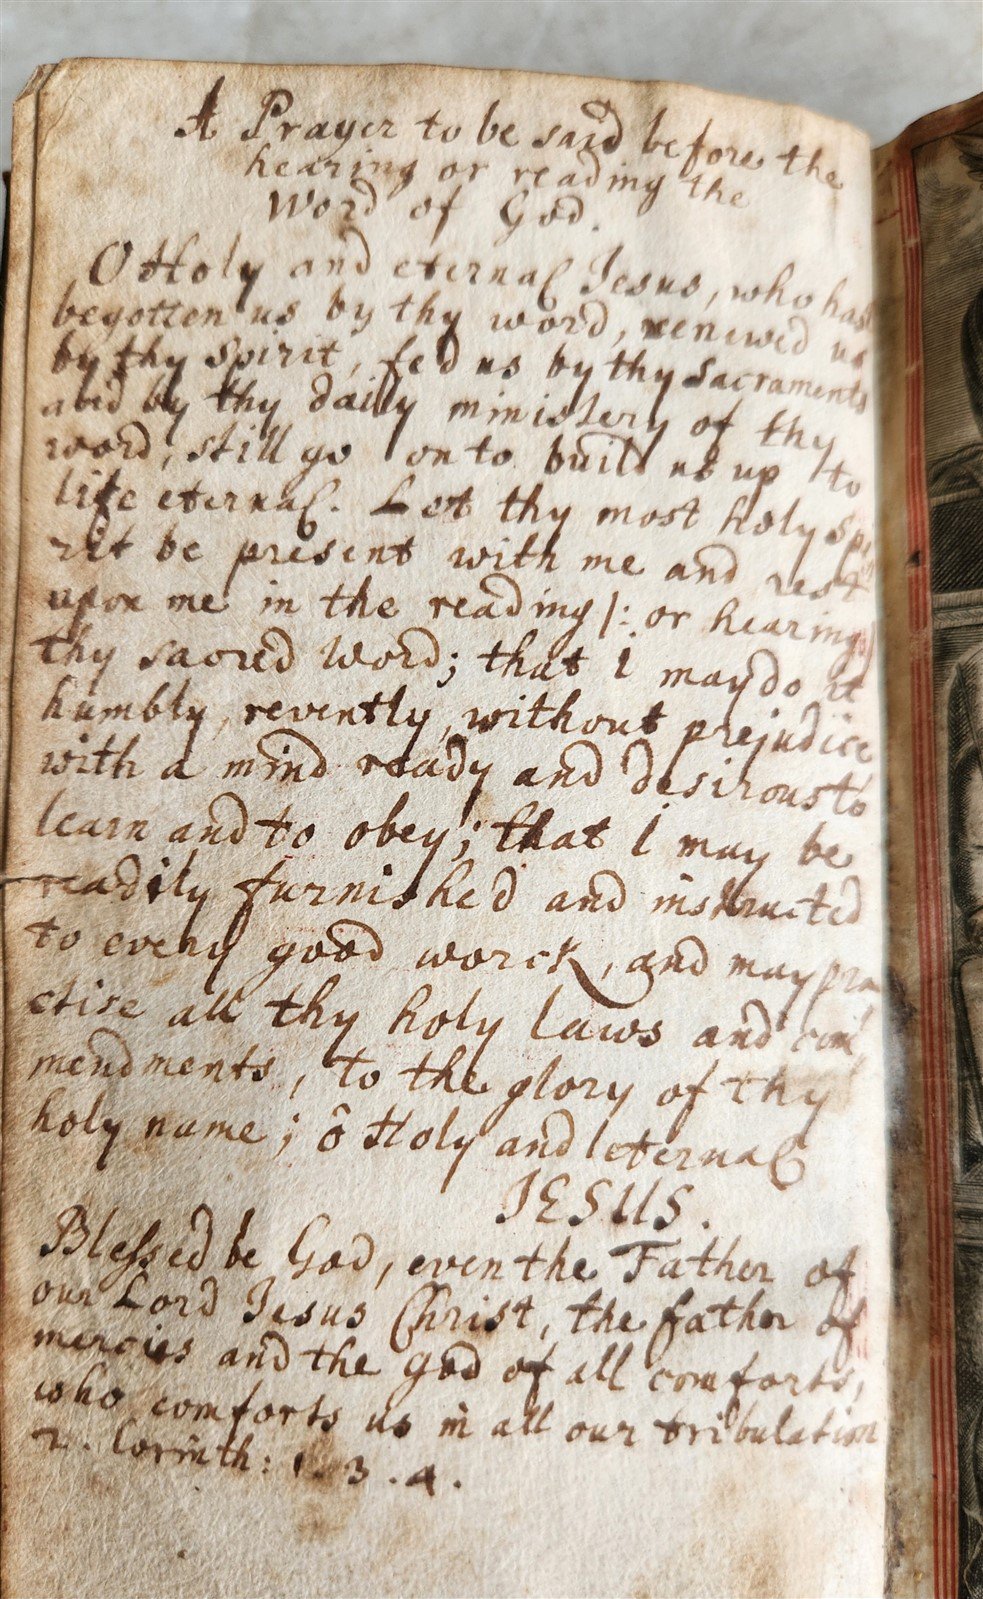 A Prayer to be said before the
hearing or reading the
Word of God.
O Holy and eternal Jesus, who hast
begotten us by thy word, renewed us
by thy Spirit, fed us by thy Sacraments
and by thy daily ministery of thy
word, still go on to build us up to
life eternal. Let thy most holy Spi
rit be present with me and rest
upon me in the reading /: or hearing :/
thy sacred Word; that i may do it
humbly, revently, without prejudice
with a mind ready and desirous to
learn and to obey; that i may be
readily furnished and instructed
to every good worck, and may pra
ctise all thy holy laws and com
mendments, to the glory of thy
holy name; ô Holy and eternal
JESUS.
Blessed be God, even the Father of
our Lord Jesus Christ, the father of
mercies and the god of all comforts,
who comforts us in all our tribulation
2. Corinth: 1. 3. 4.